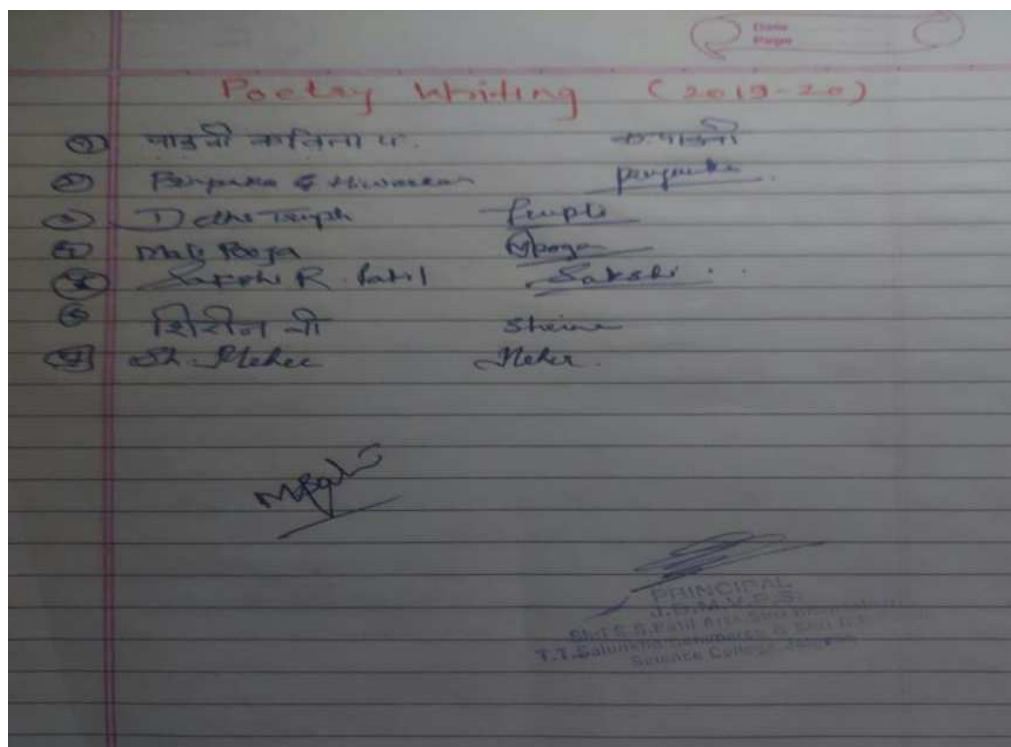 Date
Page
Poetry Writing (2019-20)
① पाडवी कविता प. क.पाडवी
② Hiwarkar Priyanka
③ Trupti
④ Mali Pooja Mpooja
⑤ Sakshi R. Patil Sakshi
⑥ शिरीन बी
⑦ Sh. Meher Meher.
PRINCIPAL
J.D.M.V.P.S.
Shri S.S.Patil Arts, Shri
T.T.Salunkhe Commerce & Shri
Science College, Jalgaon